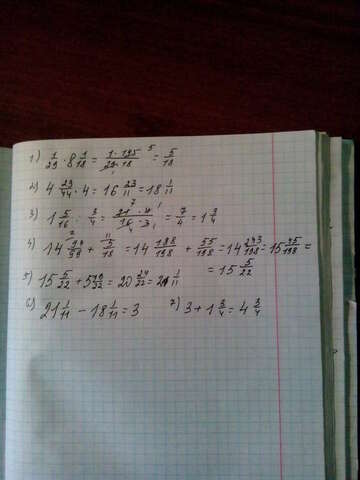 1) 1/29 · 8 1/18 = 1 · 145/29 · 18 5 1 = 5/18
2) 4 23/44 · 4 = 16 23/11 = 18 1/11
3) 1 5/16 : 3/4 = 21 · 4/16 · 3 7 1 4 1 = 7/4 = 1 3/4
4) 14 2 + 5/18 11 = 14 188/198 + 55/198 = 14 243/198 = 15 45/198 =
= 15 5/22
5) 15 5/22 + 5 = 20 = 1/11
6) 21 1/11 - 18 1/11 = 3 7) 3 + 1 3/4 = 4 3/4